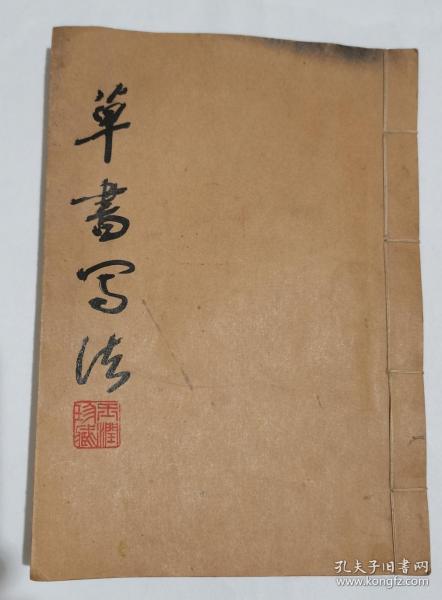 草書写法
玉潤
珍藏
孔夫子旧书网
www.kongfz.com